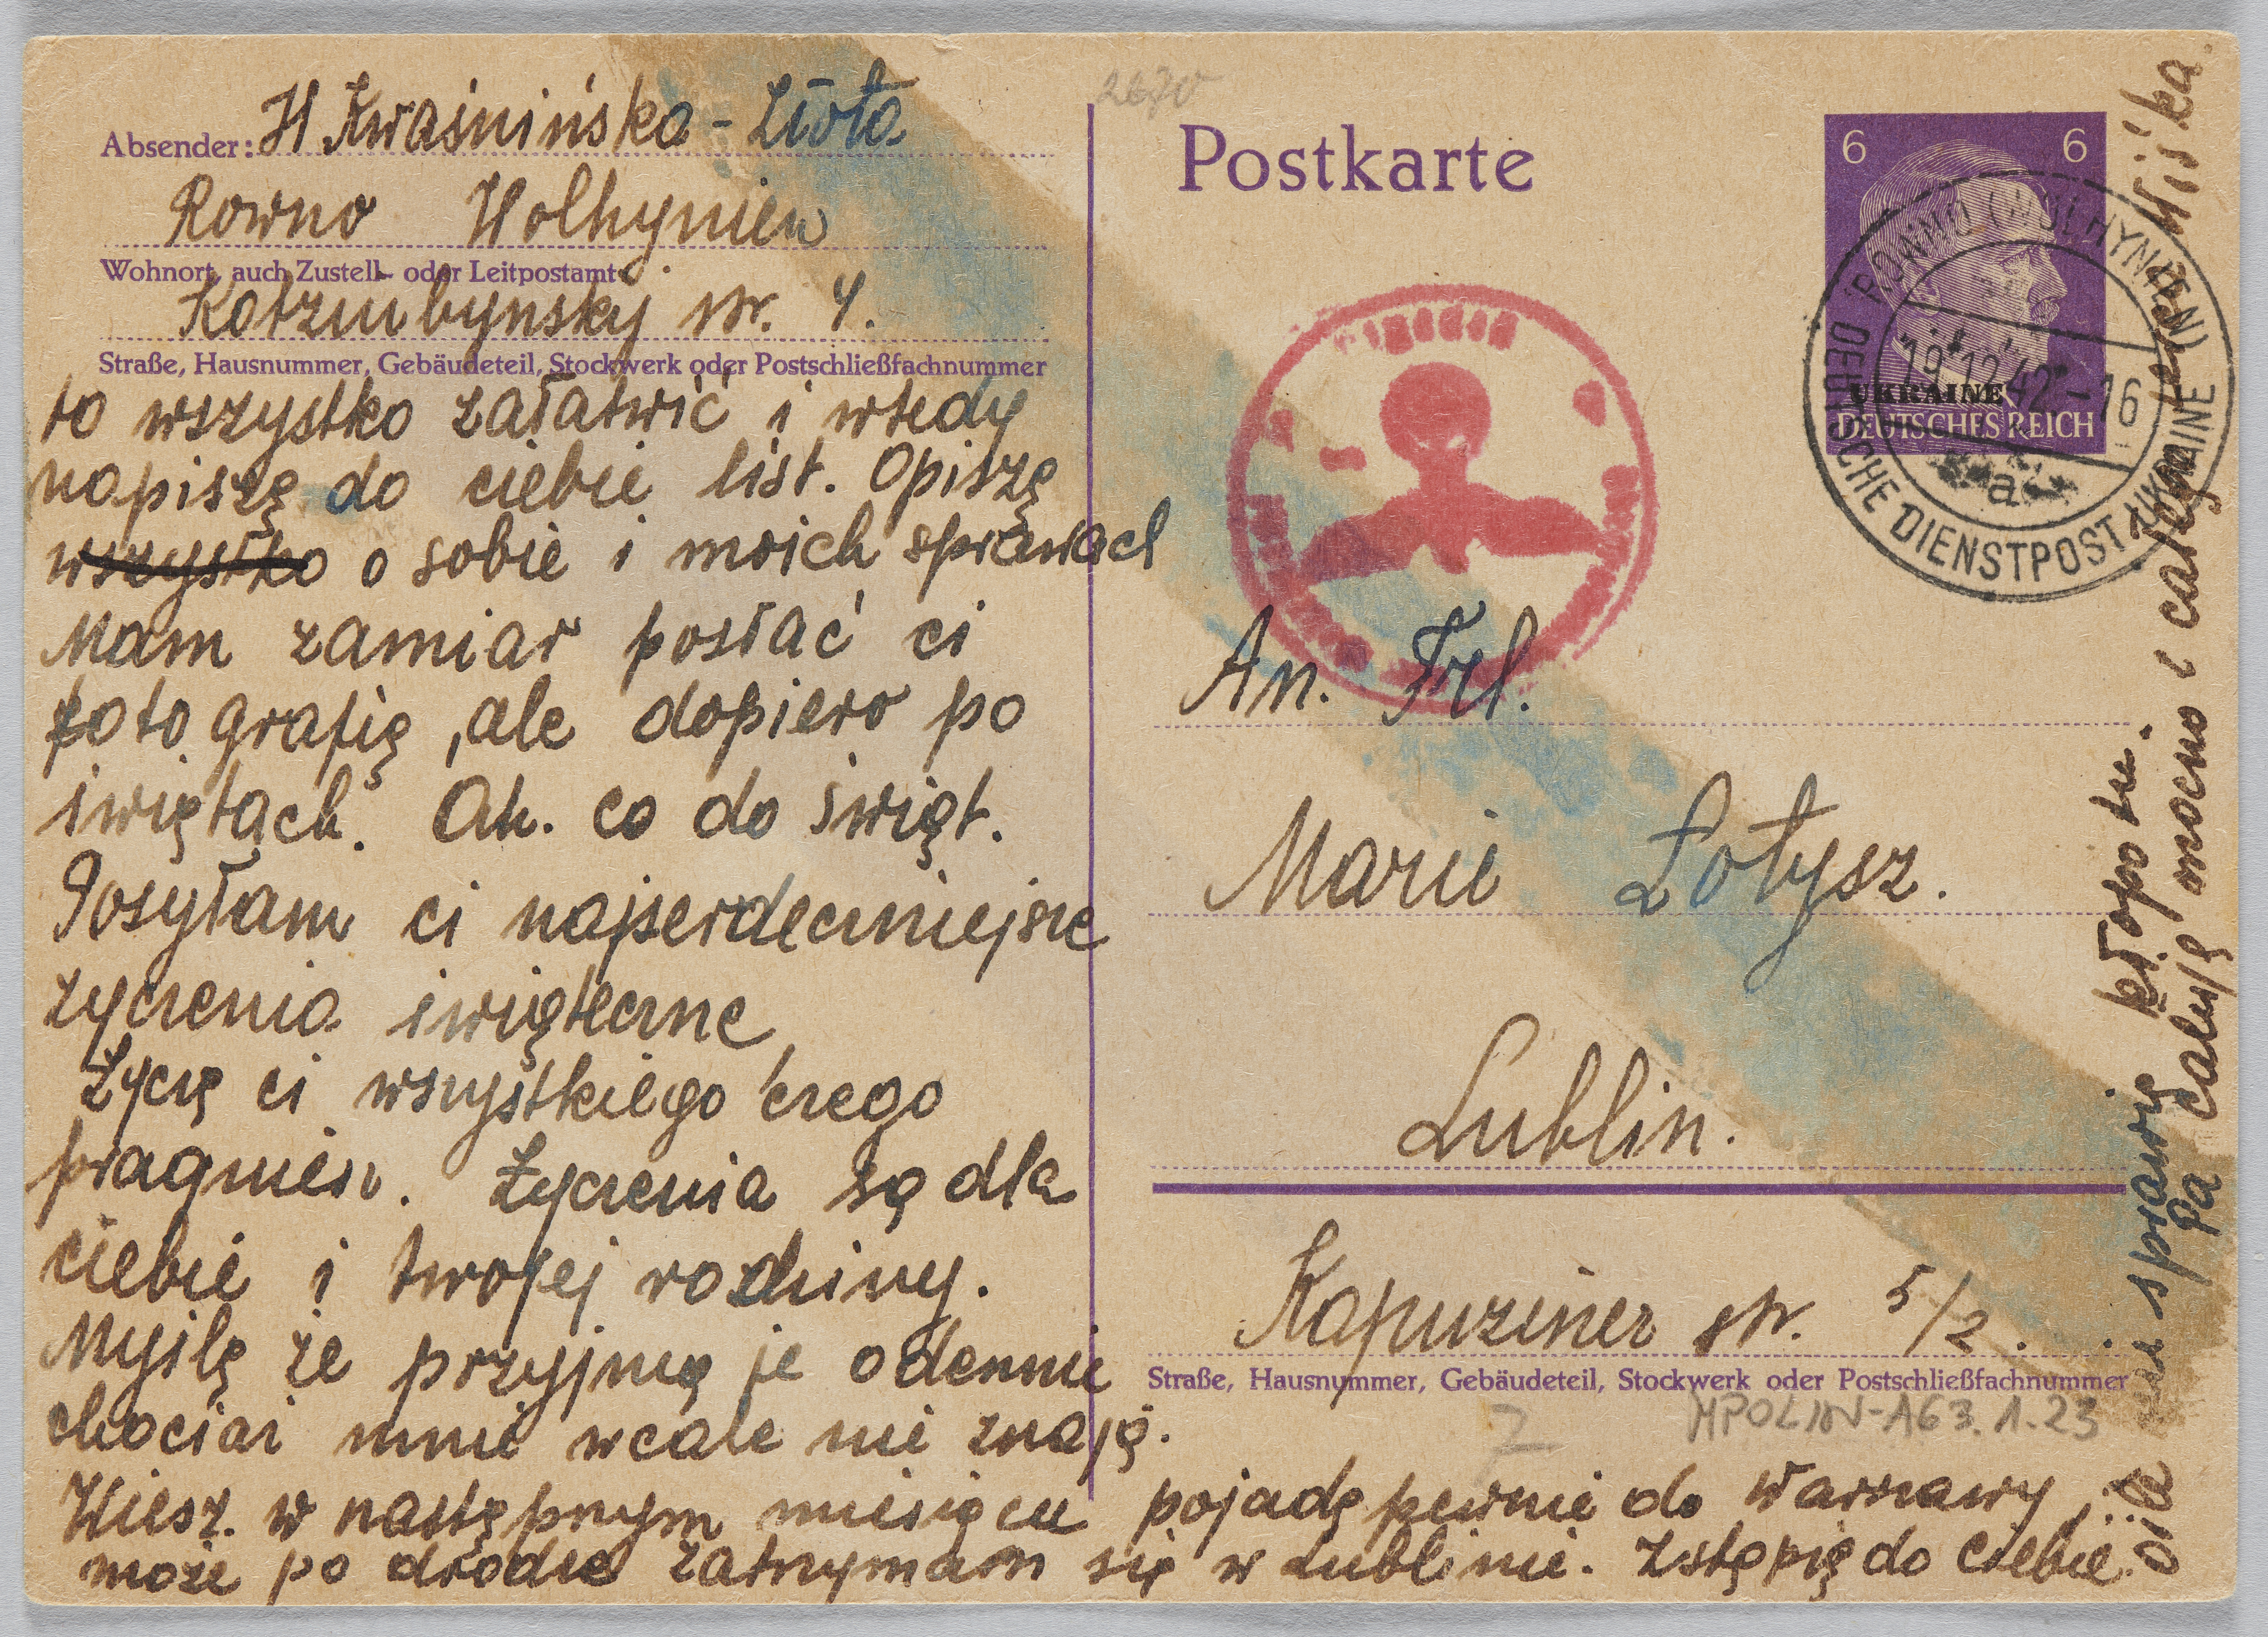 Absender: H Kwaśnińska - Złota
Rowno Wolhynien
Wohnort, auch Zustell- oder Leitpostamt
Kotzmbynsky str. 4.
Straße, Hausnummer, Gebäudeteil, Stockwerk oder Postschließfachnummer
to wszystko załatwić i wtedy
napiszę do ciebie list. Opiszę
wszystko o sobie i moich sprawach
Mam zamiar posłać ci
fotografię, ale dopiero po
świętach. Ah. co do świąt.
Posyłam ci najserdeczniejsze
życzenia świąteczne
Życzę ci wszystkiego czego
pragniesz. Życzenia są dla
ciebie i twojej rodziny.
Myślę że przyjmą je odemnie
chociaż mnie wcale nie znają.
Wiesz. w następnym miesiącu pojadę pewnie do Warszawy,
może po drodze zatrzymam się w Lublinie. Zstąpię do ciebie.
o ile nie sprawię kłopotu.
Pa całuję mocno i całego
Miśka.
2670
Postkarte
6 6
UKRAINE
DEUTSCHES REICH
ROWNO (WOLHYNIEN)
19.12.42.-16
a
DEUTSCHE DIENSTPOST UKRAINE
An. Frl.
Marie Łotysz.
Lublin.
Kapuziner str. 5/2.
Straße, Hausnummer, Gebäudeteil, Stockwerk oder Postschließfachnummer
7
MPOLIN-A63.1.23